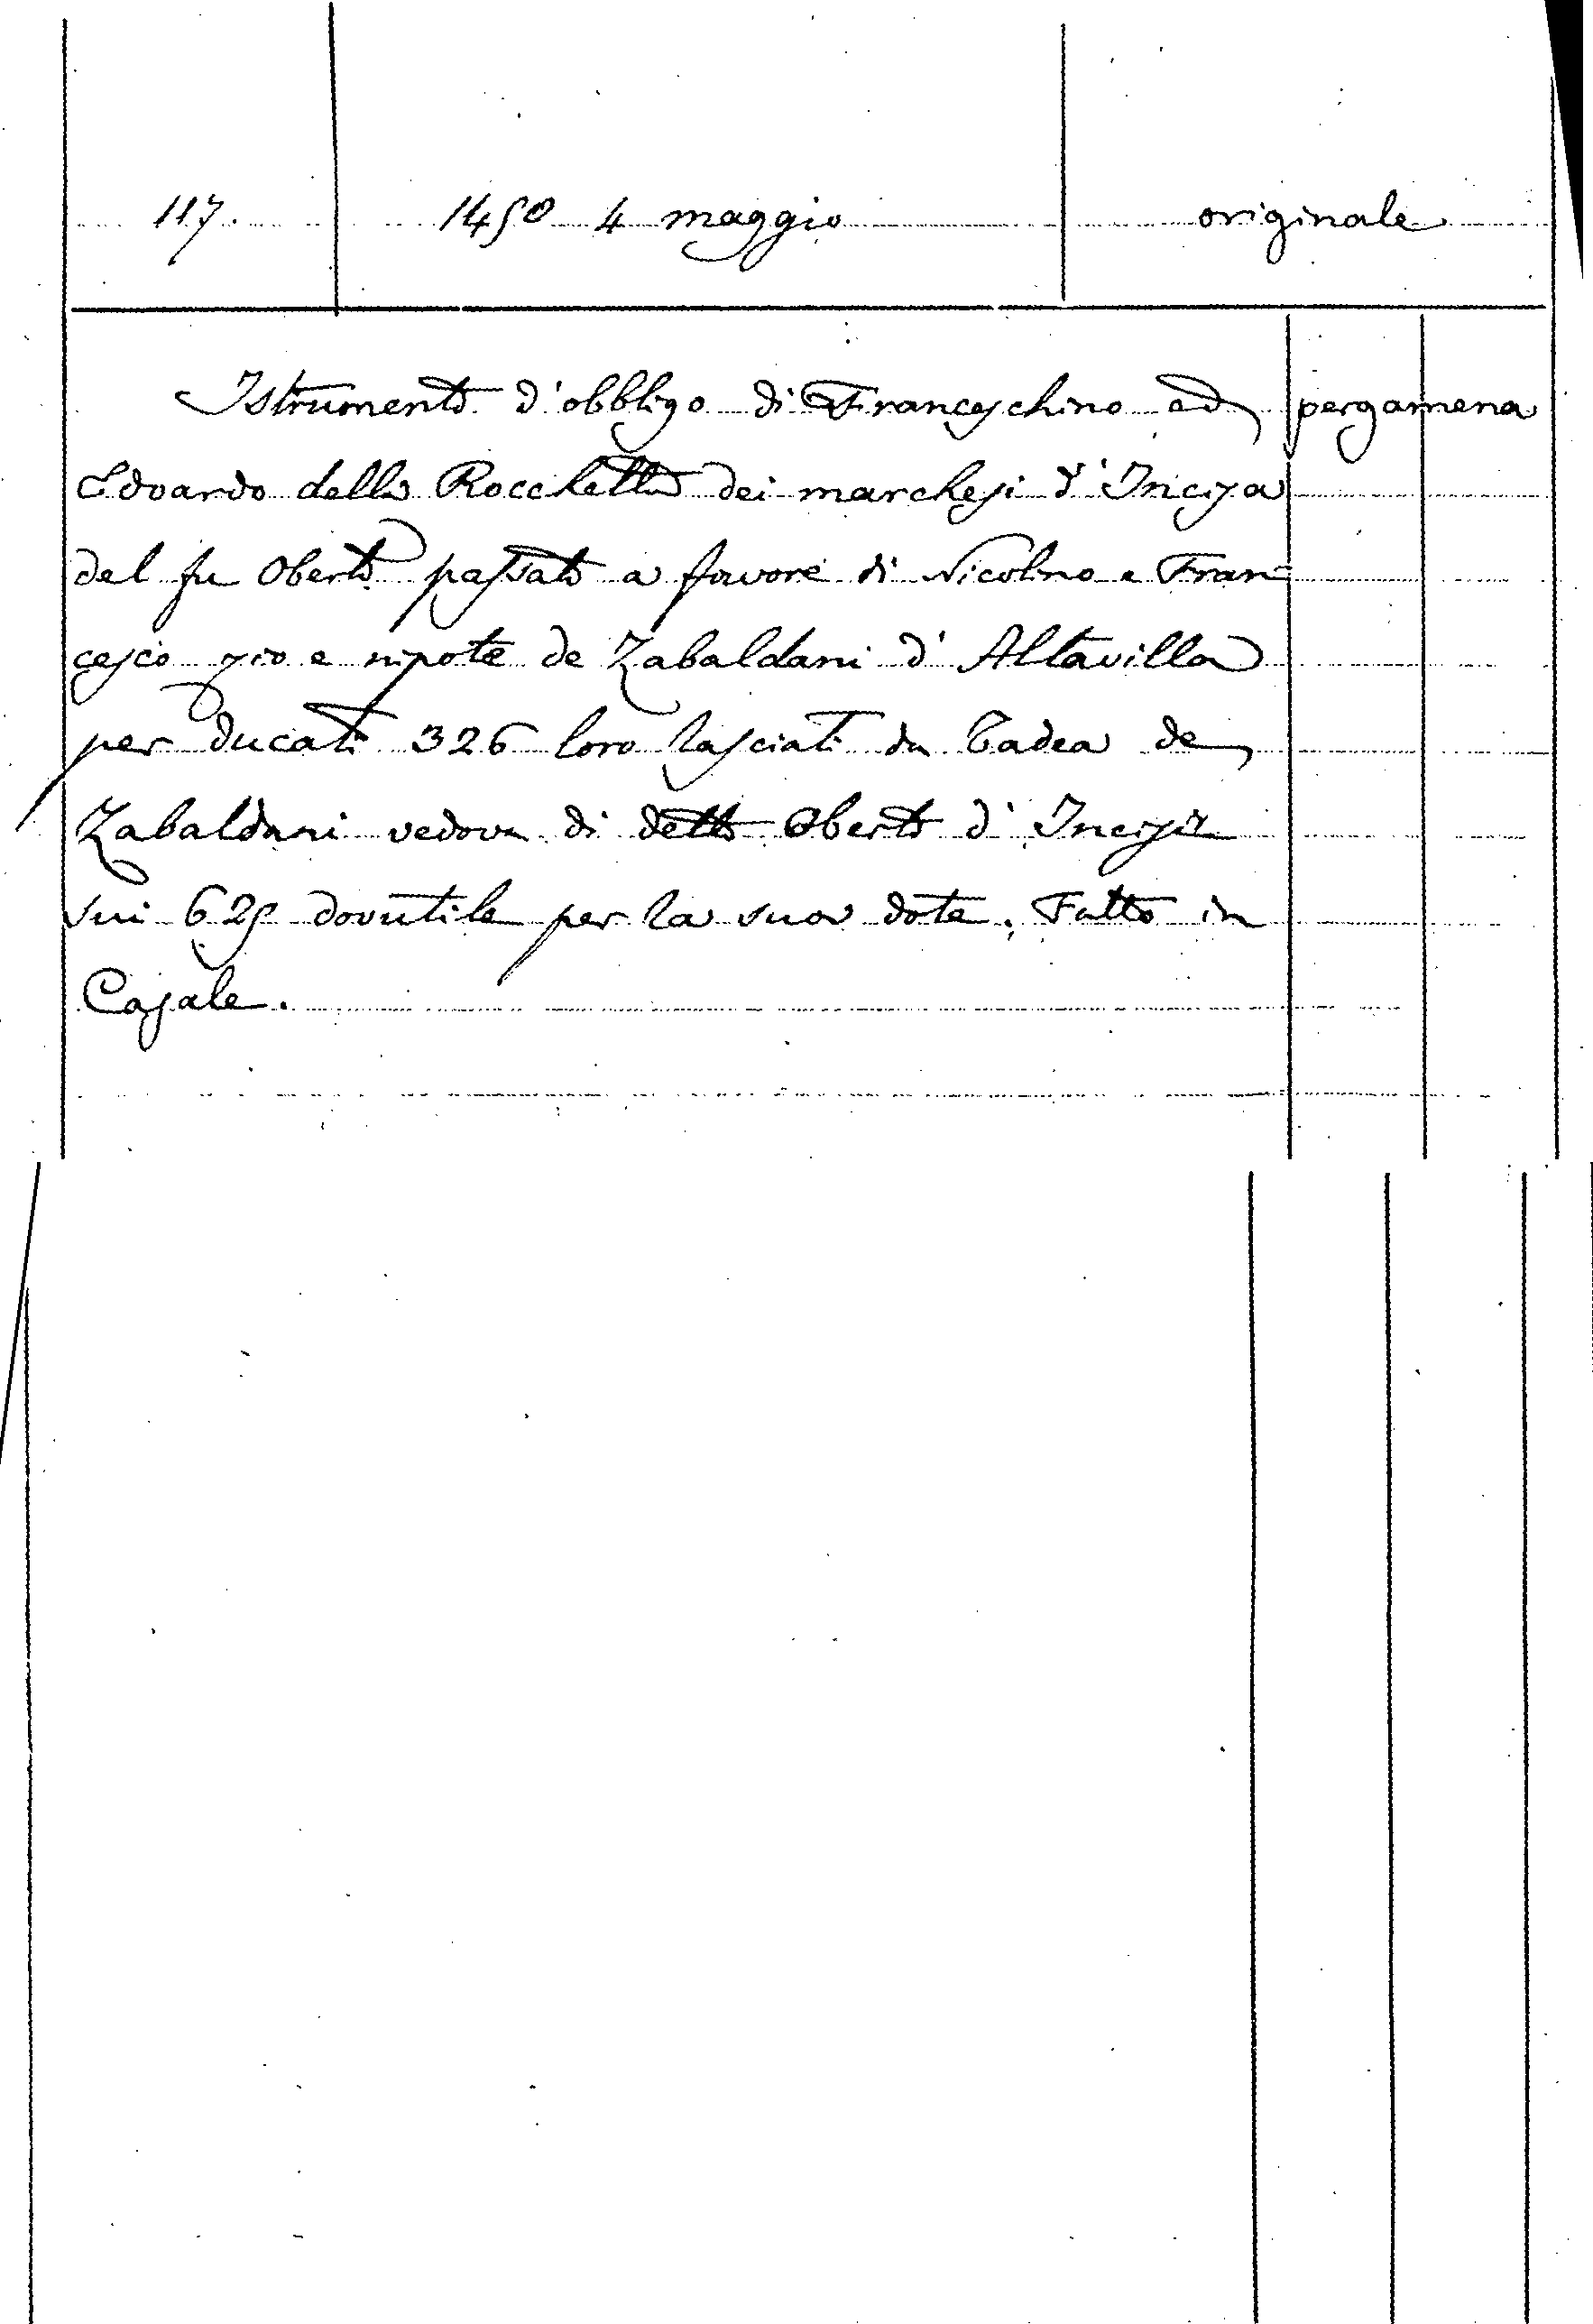 117. 1450 4 maggio originale
Istrumento d'obbligo di Franceschino ed pergamena
Edoardo della Rocchetta dei marchesi d'Incisa
del fu Oberto passato a favore di Nicolino e Fran=
cesco zio e nipote de Zabaldani d'Altavilla
per ducati 326 loro lasciati da Tadea de
Zabaldani vedova di detto Oberto d'Incisa
sui 625 dovutile per la sua dote. Fatto in
Casale.